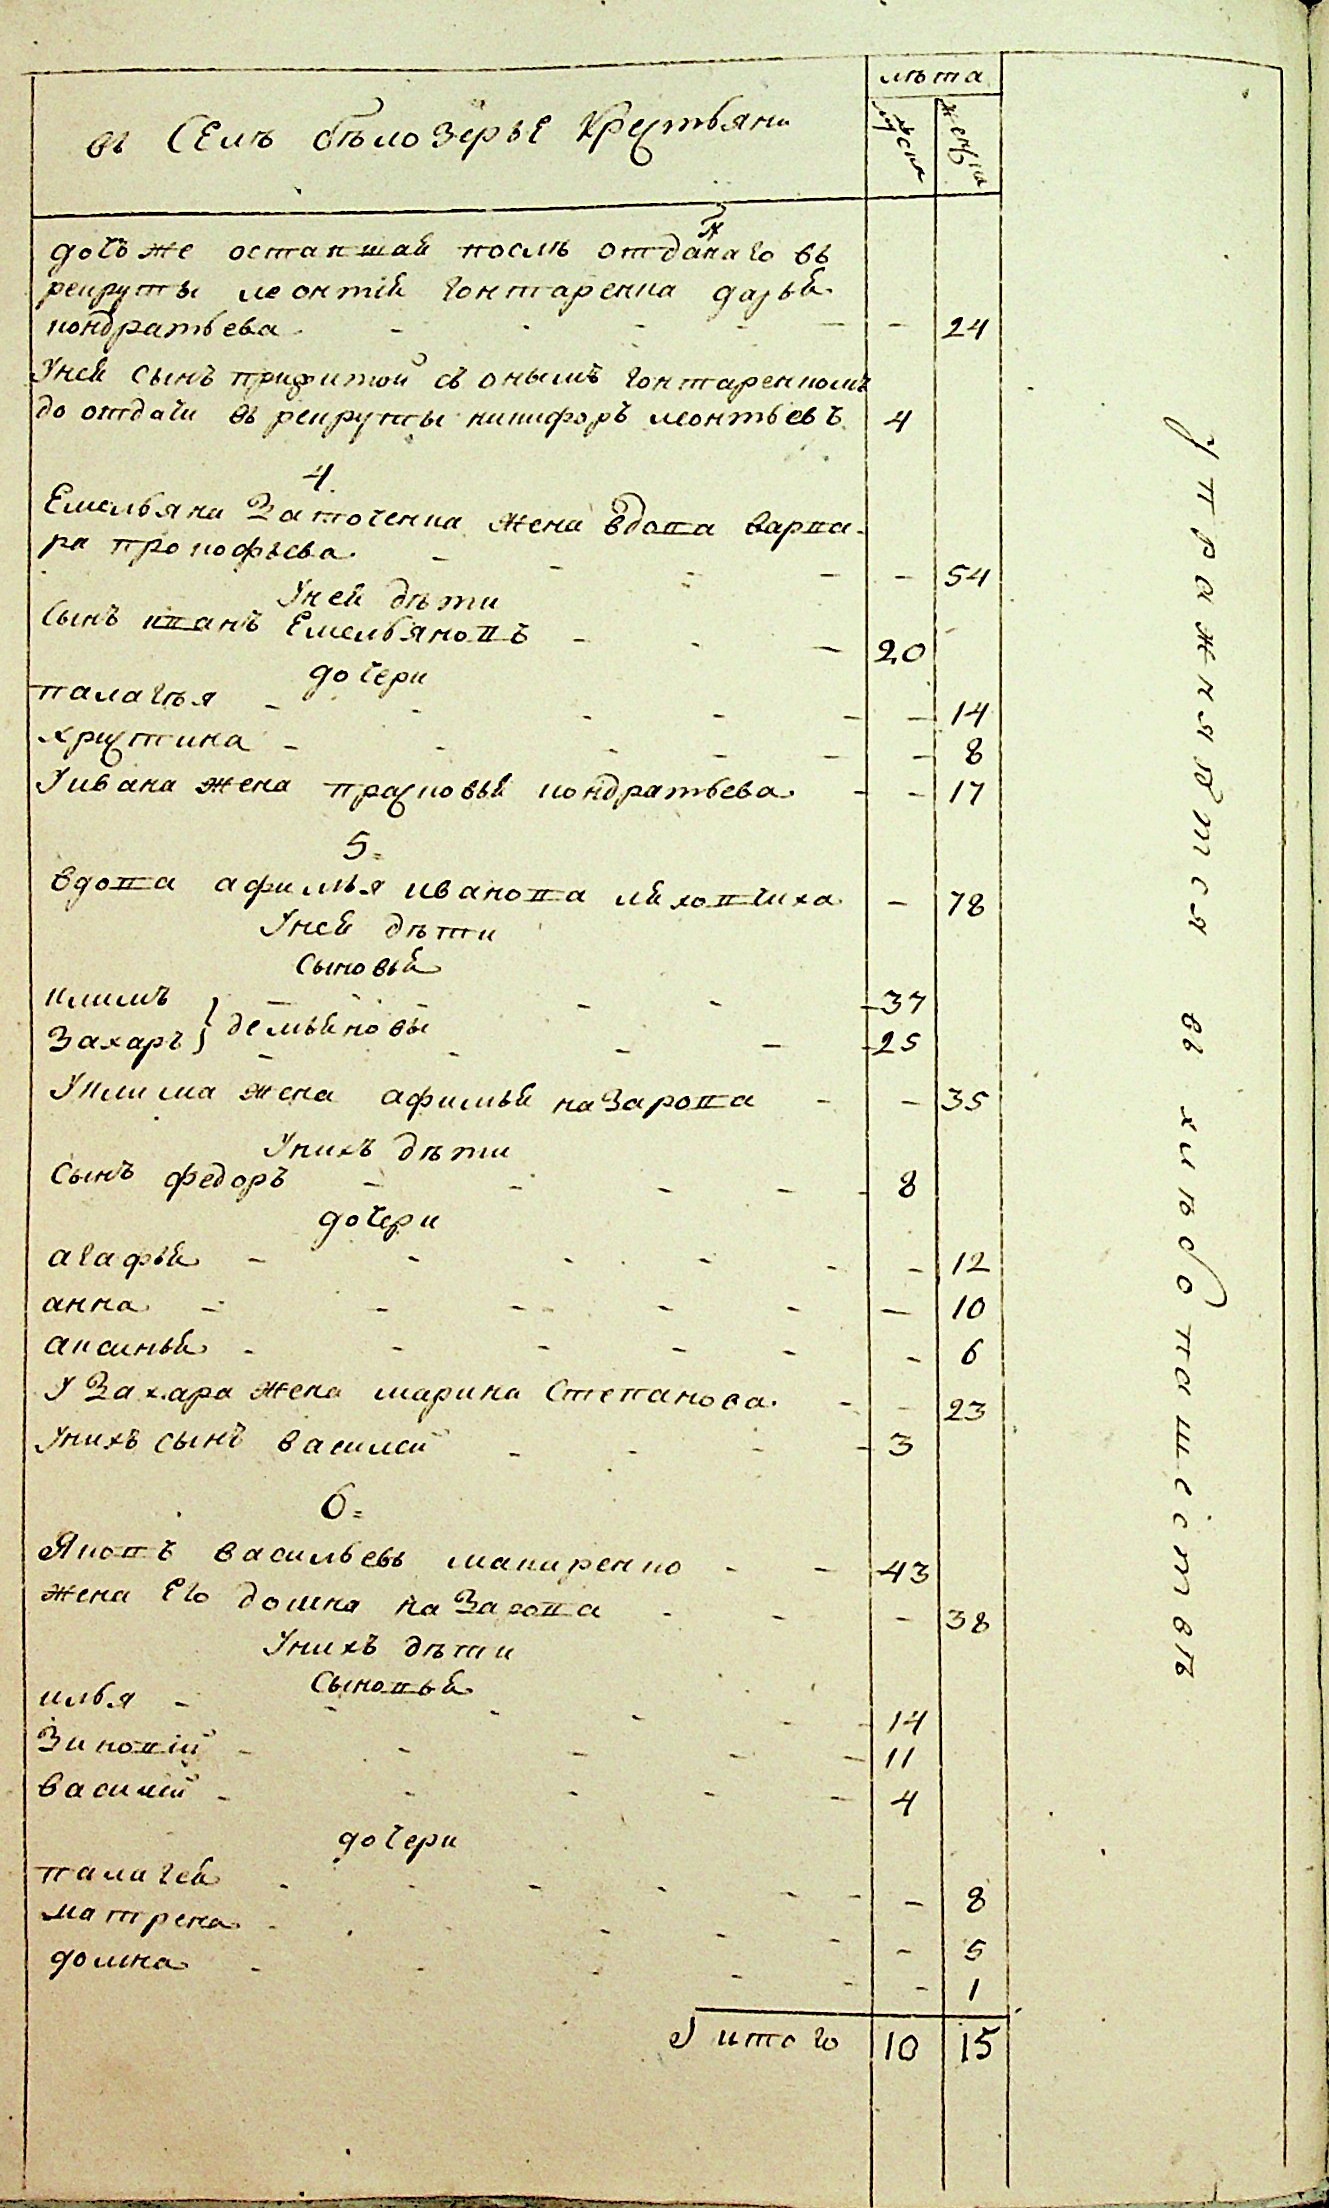 лѣта
въ Селѣ бѣлозерье Крестьяни
мужска
женска
дочь же оставшая послѣ отданнаго въ
рекруты леонтія гонтаренка дарья
кондратьева - - - - - - 24
У ней сынъ прижитой съ онымъ гонтаренкомъ
до отдачи въ рекруты никифоръ леонтьевъ 4
4.
Емельяна Заточенка жена вдова варва-
ра прокофьева - - - - - 54
У ней дѣти
сынъ иванъ Емельяновъ - - - 20
дочери
палагѣя - - - - - - 14
христина - - - - - - 8
У ивана жена прасковья кондратьева - - 17
5=
вдова афимья иванова ляховчиха - 78
У ней дѣти
сыновья
климъ - - - - - 37
Захаръ } демьяновы - - - - 25
У клима жена афимья назарова - - 35
У нихъ дѣти
сынъ федоръ - - - - - 8
дочери
агафья - - - - - - 12
анна - - - - - - 10
аксинья - - - - - - 6
У Захара жена марина Степанова - - 23
У нихъ сынъ василей - - - - 3
6=
Яковъ васильевъ макиренко - - 43
жена Его домна назарова - - - 38
У нихъ дѣти
сыновья
илья - - - - - - 14
Зиновій - - - - - 11
василей - - - - - 4
дочери
палагея - - - - - - - 8
матрена - - - - - - 5
домна - - - - - - 1
итого 10 15
упражняются въ хлѣбопашествѣ